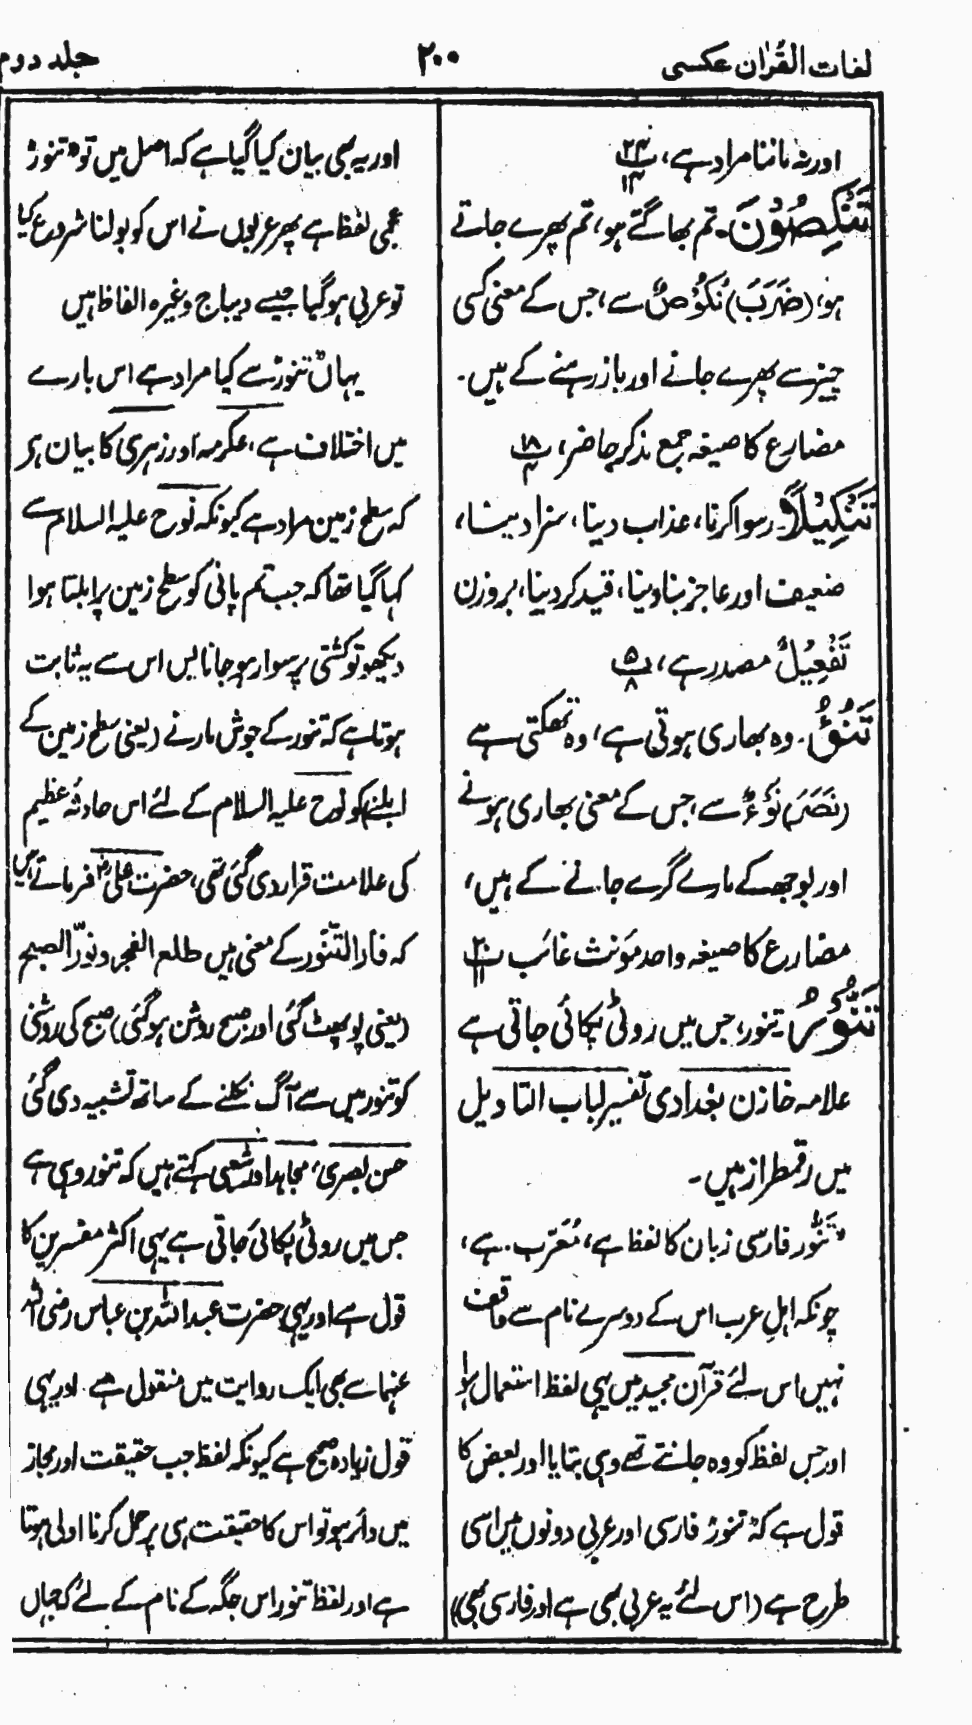 لغات القرآن عکسی
۲۰۰
جلد دوم
اور نہ ماننا مراد ہے،
تَنْکِصُوْنَ۔ تم بھاگتے ہو، تم پھرے جاتے
ہو، (ضَرَبَ) نُکُوْصٌ سے، جس کے معنی کسی
چیز سے پھرے جانے اور باز رہنے کے ہیں۔
مضارع کا صیغہ جمع مذکر حاضر، پ ۱۸ ۴
تَنْکِیْلًا۔ رسوا کرنا، عذاب دینا، سزا دینا،
ضعیف اور عاجز بنا دینا، قید کر دینا، بروزن
تَفْعِیْلٌ مصدر ہے، پ ۵ ۸
تَنُوْءُ۔ وہ بھاری ہوتی ہے، وہ تھکتی ہے
(نَصَرَ) نَوْءٌ سے، جس کے معنی بھاری ہونے
اور بوجھ کے مارے گرے جانے کے ہیں،
مضارع کا صیغہ واحد مؤنث غائب پ ۲۰ ۱۱
تَنُّوْرُ تنور، جس میں روٹی پکائی جاتی ہے
علامہ خازن بغدادی تفسیر لباب التاویل
میں رقمطراز ہیں۔
"تَنُّور فارسی زبان کا لفظ ہے، مُعَرَّب ہے،
چونکہ اہلِ عرب اس کے دوسرے نام سے واقف
نہیں اس لئے قرآن مجید میں یہی لفظ استعمال ہوا
اور جس لفظ کو وہ جانتے تھے وہی بتایا اور بعض کا
قول ہے کہ تنور فارسی اور عربی دونوں میں اسی
طرح ہے (اس لئے یہ عربی بھی ہے اور فارسی بھی)
اور یہ بھی بیان کیا گیا ہے کہ اصل میں تو تنور
عجمی لفظ ہے پھر عربوں نے اس کو بولنا شروع کیا
تو عربی ہو گیا جیسے دیباج وغیرہ الفاظ ہیں
یہاں تنور سے کیا مراد ہے اس بارے
میں اختلاف ہے، عکرمہ اور زہری کا بیان ہے
کہ سطح زمین مراد ہے کیونکہ نوح علیہ السلام سے
کہا گیا تھا کہ جب تم پانی کو سطح زمین پر ابلتا ہوا
دیکھو تو کشتی پر سوار ہو جانا پس اس سے یہ ثابت
ہوتا ہے کہ تنور کے جوش مارنے (یعنی سطح زمین کے
ابلنے) کو نوح علیہ السلام کے لئے اس حادثہ عظیم
کی علامت قرار دی گئی تھی، حضرت علی فرماتے ہیں
کہ فار التنور کے معنی ہیں طلع الفجر و نور الصبح
(یعنی پو پھٹ گئی اور صبح روشن ہو گئی) صبح کی روشنی
کو تنور میں سے آگ نکلنے کے ساتھ تشبیہ دی گئی
حسن بصری، مجاہد اور شعبی کہتے ہیں کہ تنور وہی ہے
جس میں روٹی پکائی جاتی ہے یہی اکثر مفسرین کا
قول ہے اور یہی حضرت عبد اللہ بن عباس رضی اللہ
عنہما سے بھی ایک روایت میں منقول ہے۔ اور یہی
قول زیادہ صحیح ہے کیونکہ لفظ جب حقیقت اور مجاز
میں دائر ہو تو اس کا حقیقت ہی پر حمل کرنا اولیٰ ہوتا
ہے اور لفظ تنور اس جگہ کے نام کے لئے کہ جہاں